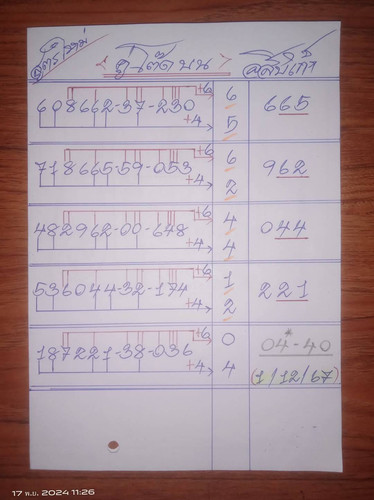 สูตรใหม่
<คู่โต๊ดบน>
+6 6
608662-37-230 665
+4 5
+6 6
718665-59-053 962
+4 2
+6 4
482962-00-648 044
+4 4
+6 1
536044-32-174 221
+4 2
+6 0
187221-38-036 04*-40
+4 4 (1/12/67)
17 พ.ย. 2024 11:26